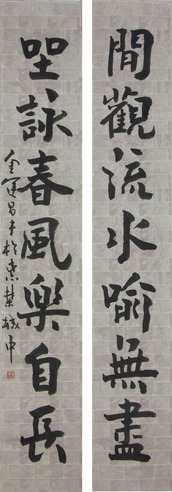 間觀流水喻無盡
坐詠春風樂自長
金運昌書於紫禁城中